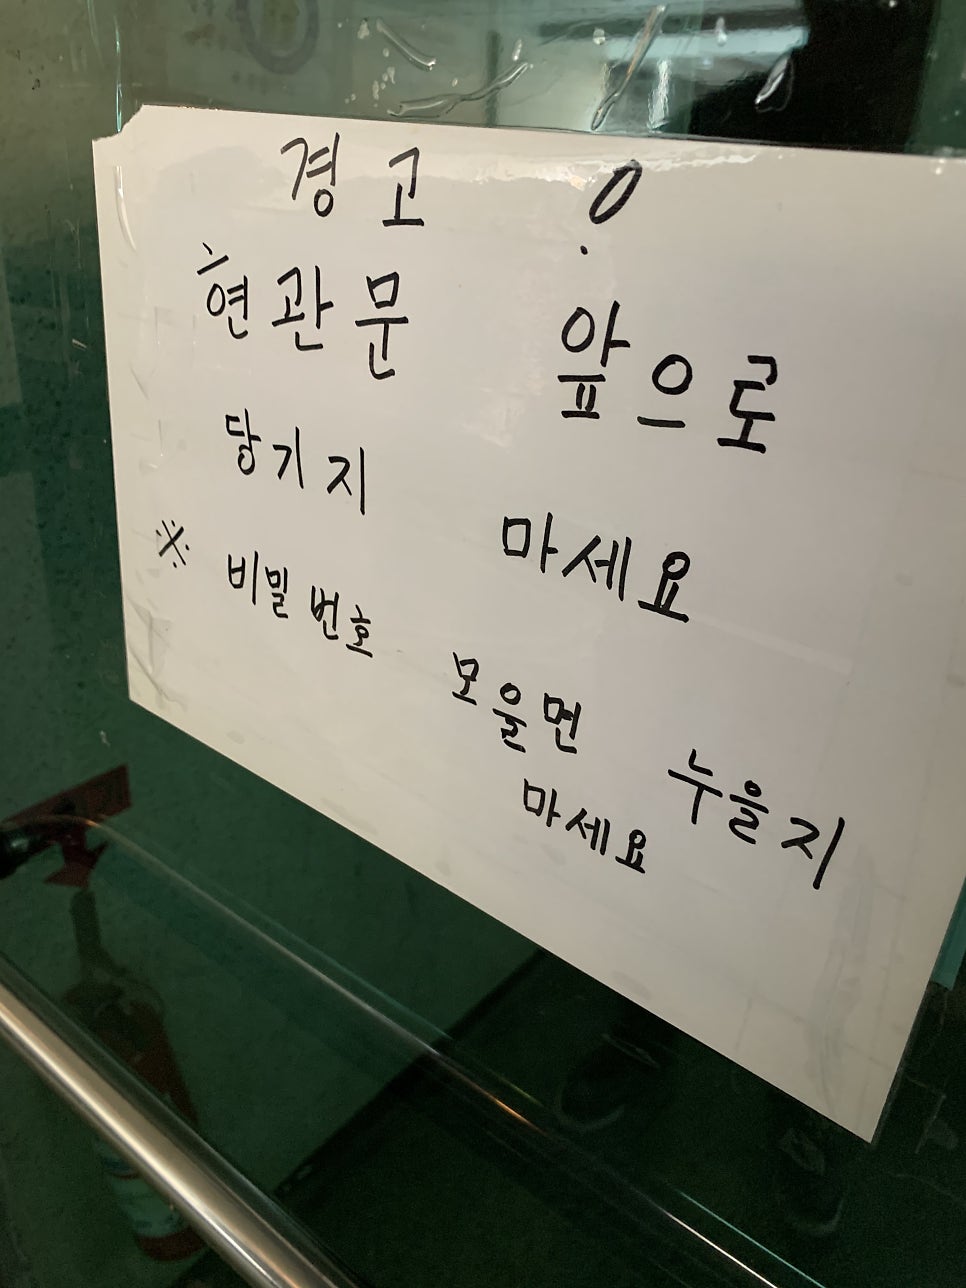 경고!
현관문 앞으로
당기지 마세요
※ 비밀번호 모을면 누을지
마세요